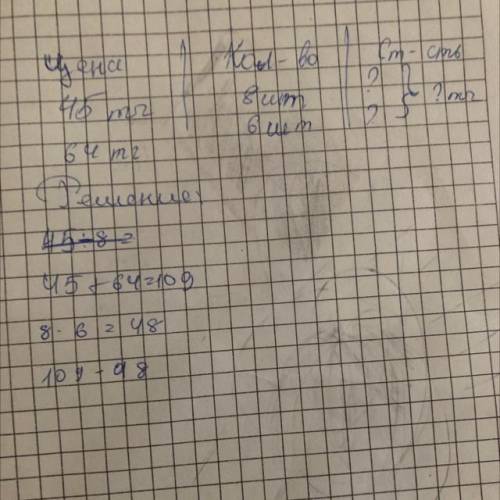 Цена Кол-во Ст-сть
45 тг 8 шт ? } ? тг
64 тг 6 шт ?
Решение:
45:8=
45+64=109
8·6=48
109-98